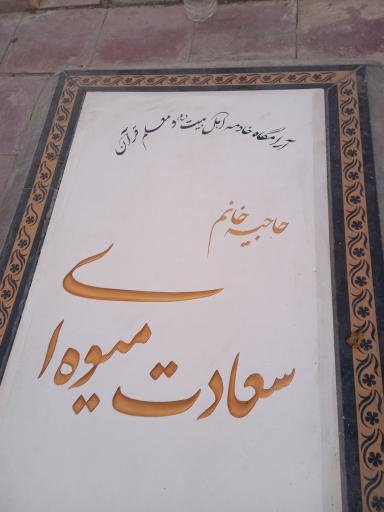 آرامگاه خادمه اهل بیت (ع) و معلم قرآن
حاجیه خانم
سعادت میوه ای